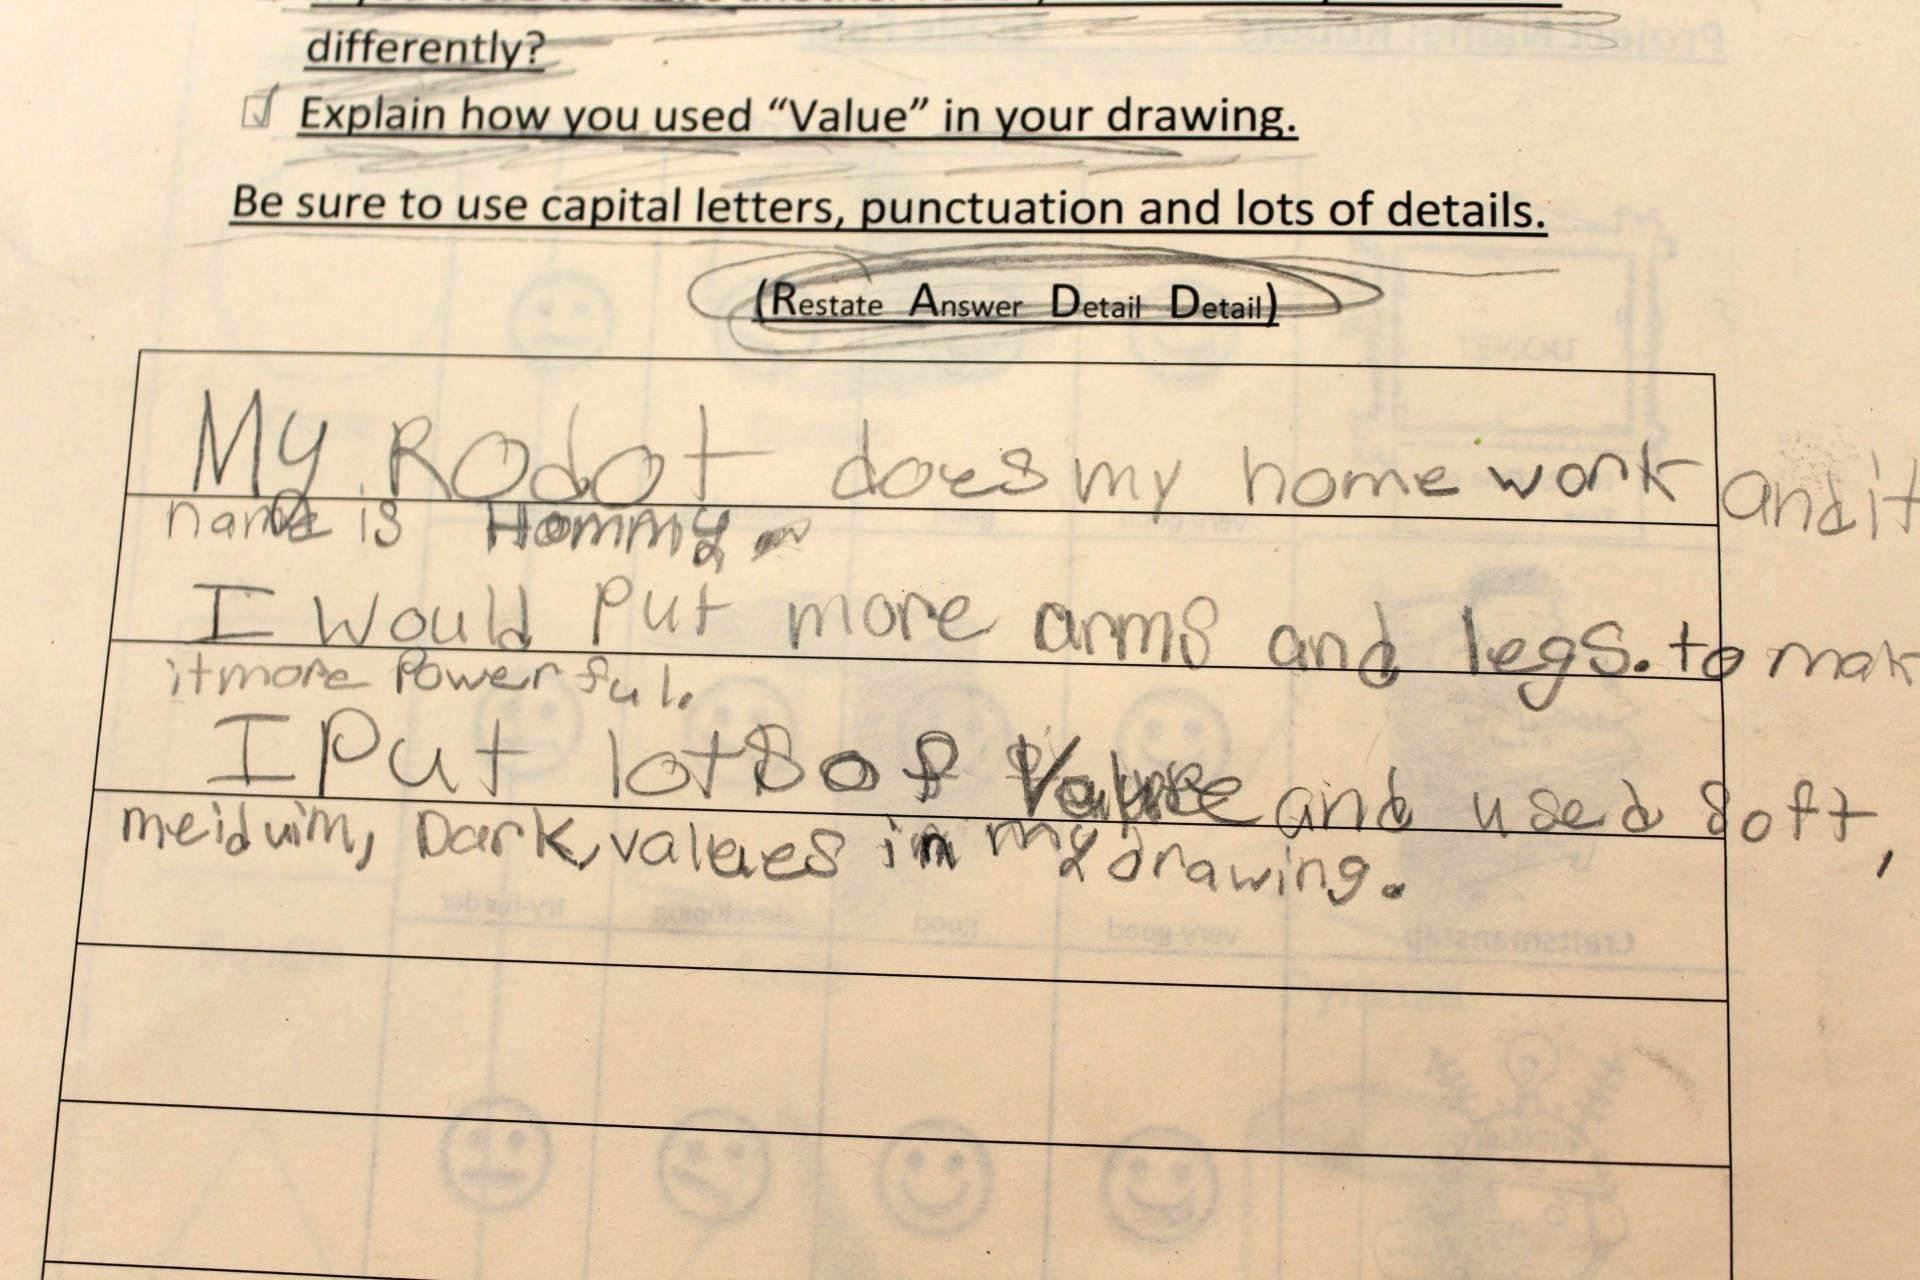 differently?
Explain how you used “Value” in your drawing.
Be sure to use capital letters, punctuation and lots of details.
(Restate Answer Detail Detail)
My Rodot does my home work and it
name is Hommy
I would Put more arms and legs. to mak
it more Powerful.
I Put lots of Value and used soft,
meiduim, Dark, values in my drawing.